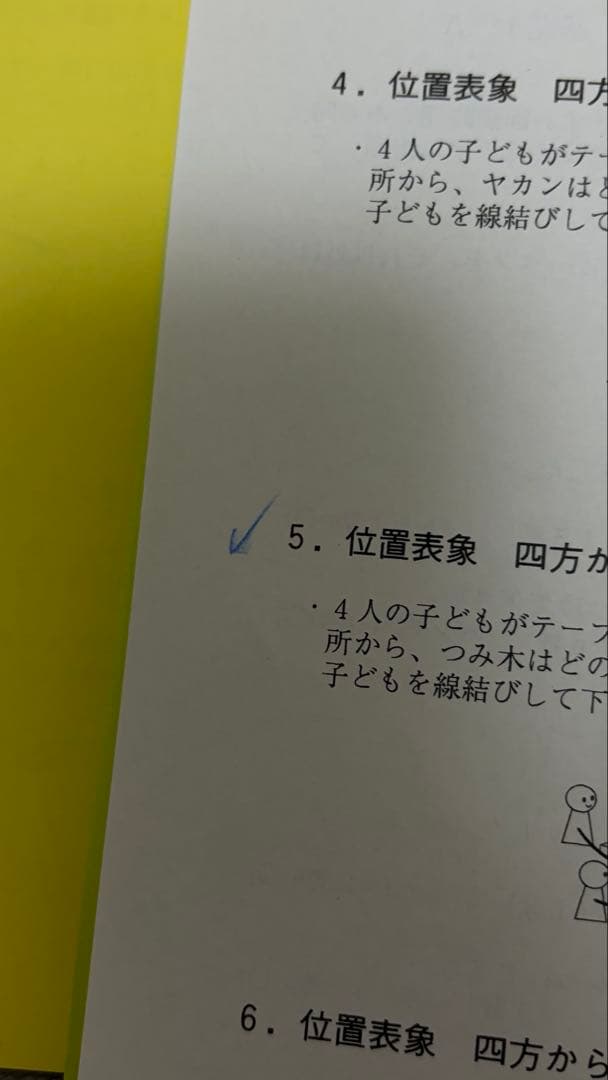 4．位置表象　四方
・4人の子どもがテー
所から、ヤカンはど
子どもを線結びして
5．位置表象　四方か
・4人の子どもがテーブ
所から、つみ木はどの
子どもを線結びして下
6．位置表象　四方から